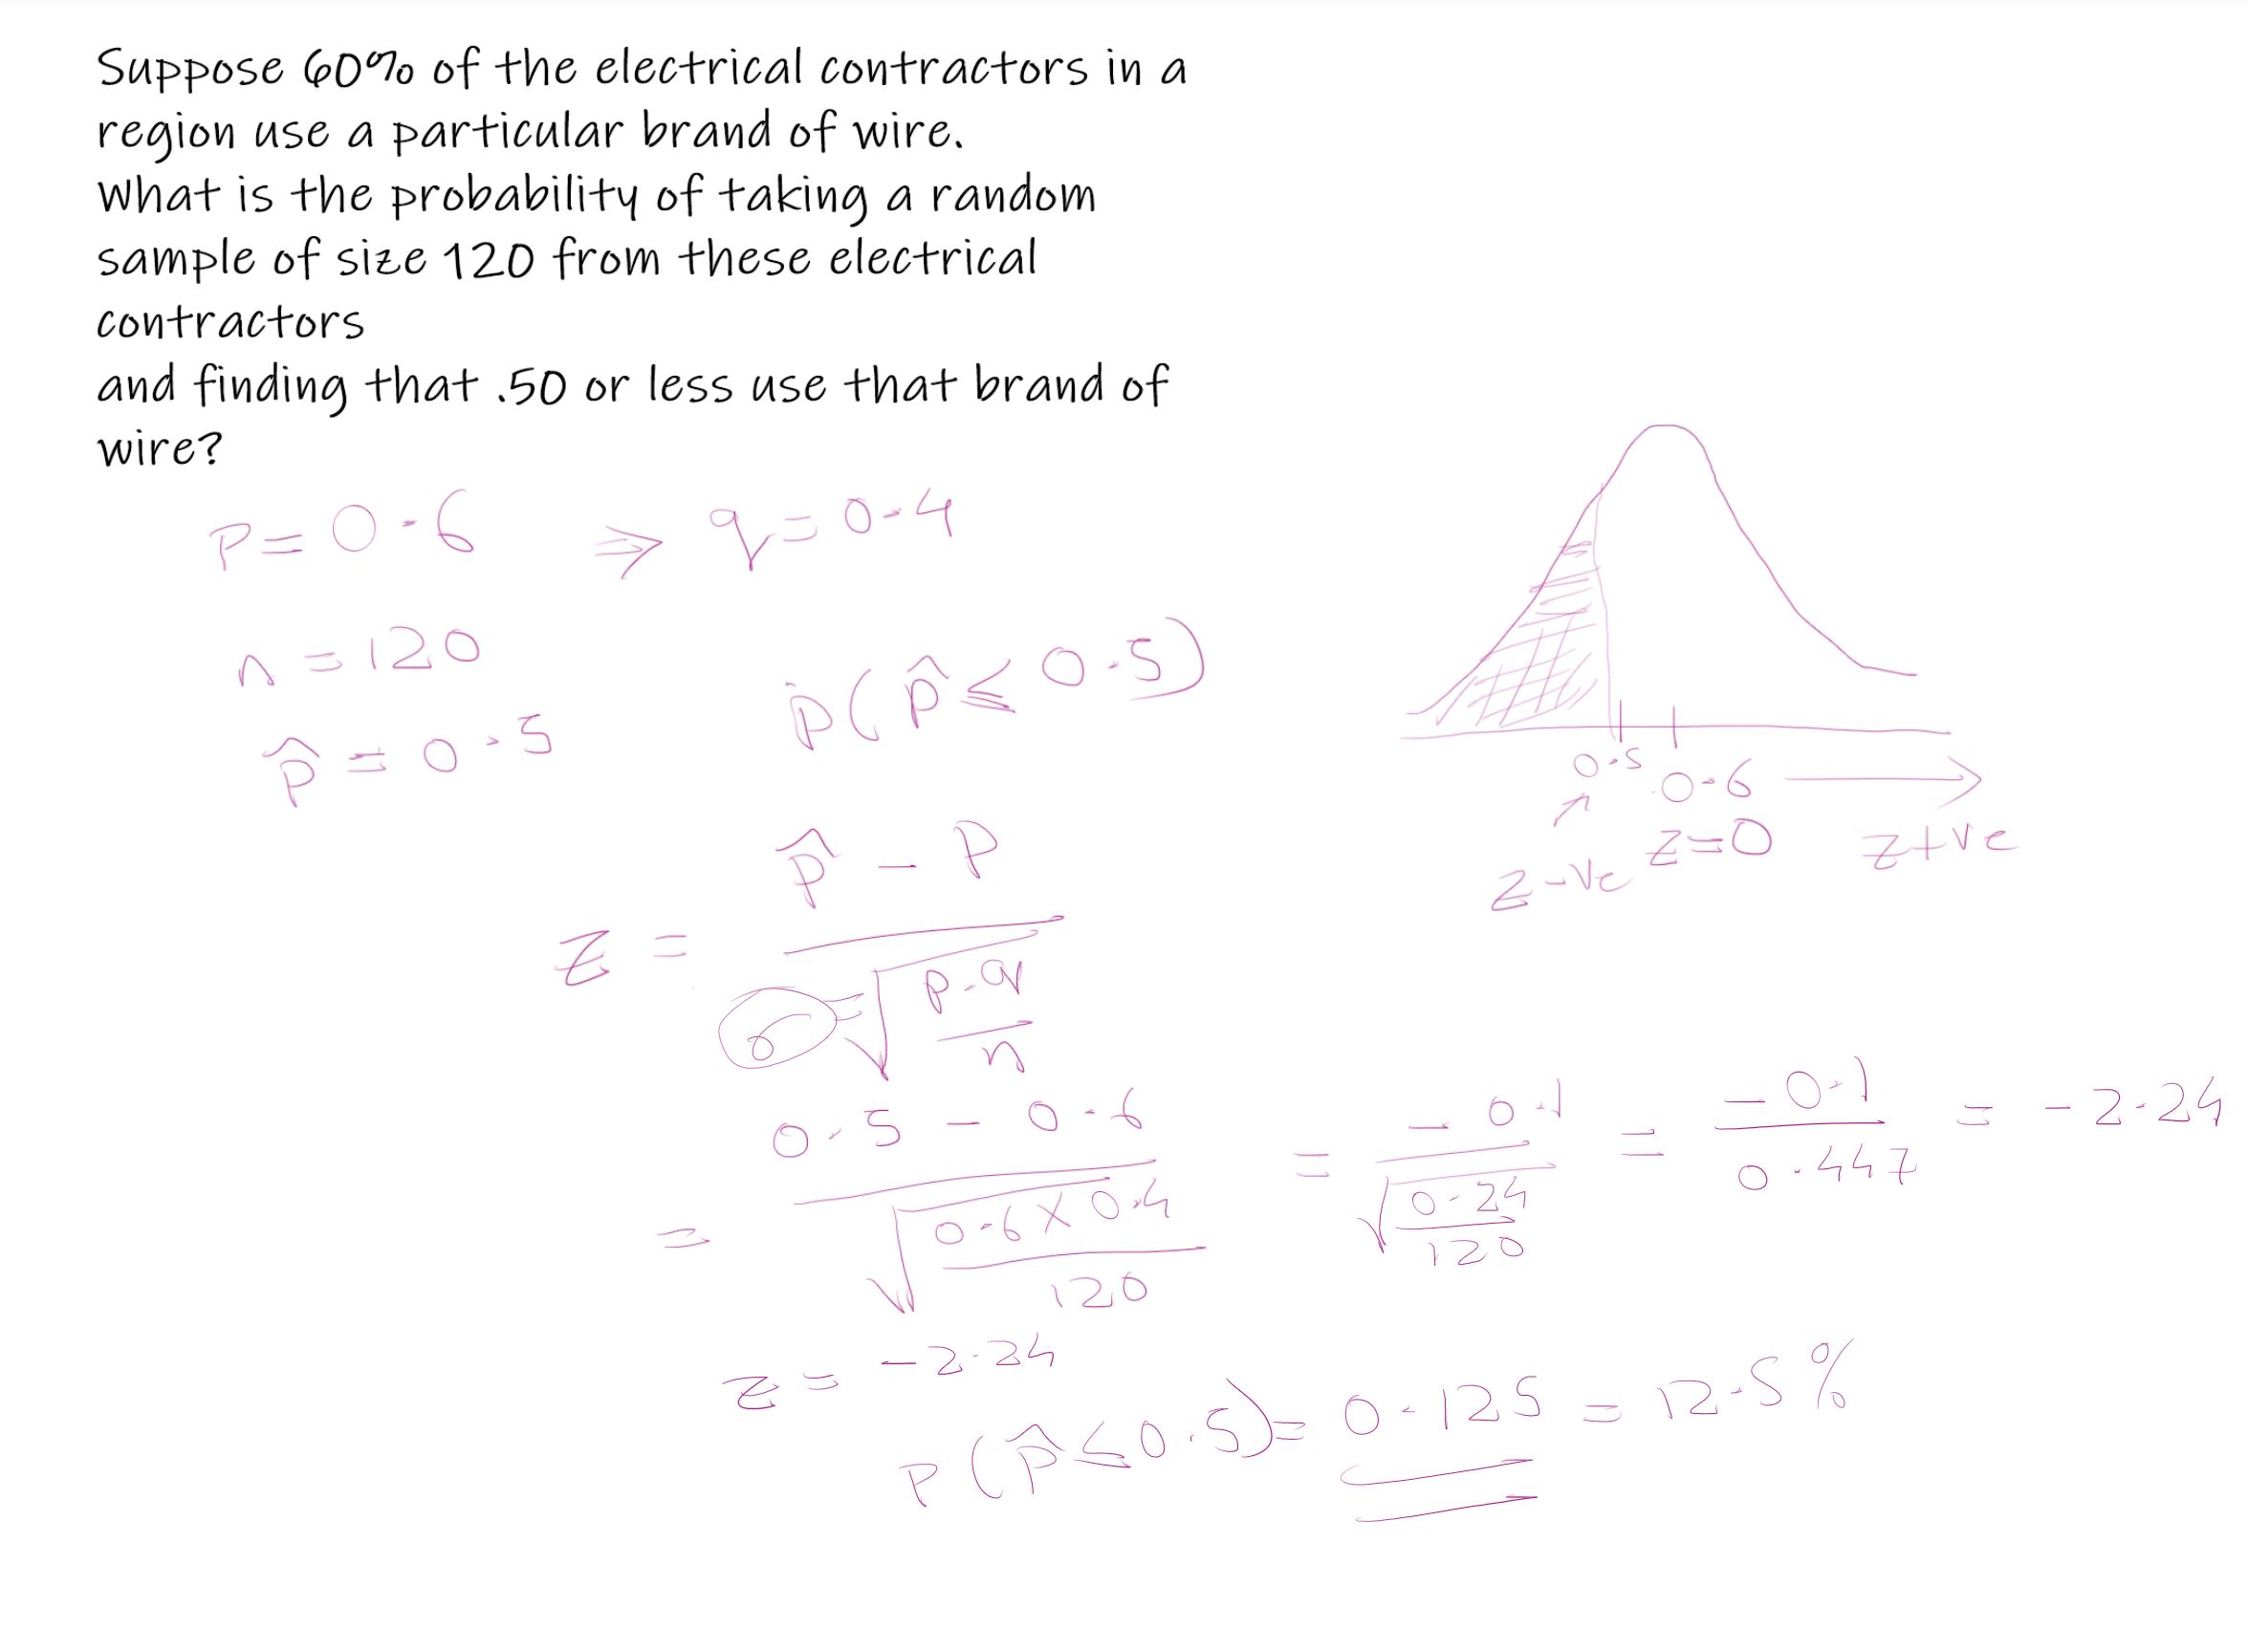 Suppose 60% of the electrical contractors in a
region use a particular brand of wire.
What is the probability of taking a random
sample of size 120 from these electrical
contractors
and finding that .50 or less use that brand of
wire?
P = 0.6 ⇒ q = 0.4
n = 120
p̂ = 0.5
P(p̂ ≤ 0.5)
0.5
0.6
z=0
z+ve
z-ve
z = (p̂ - P) / σ = √(p.q / n)
= (0.5 - 0.6) / √(0.6 X 0.4 / 120) = -0.1 / √(0.24 / 120) = -0.1 / 0.447 = -2.24
z = -2.24
P(p̂ ≤ 0.5) = 0.125 = 12.5%